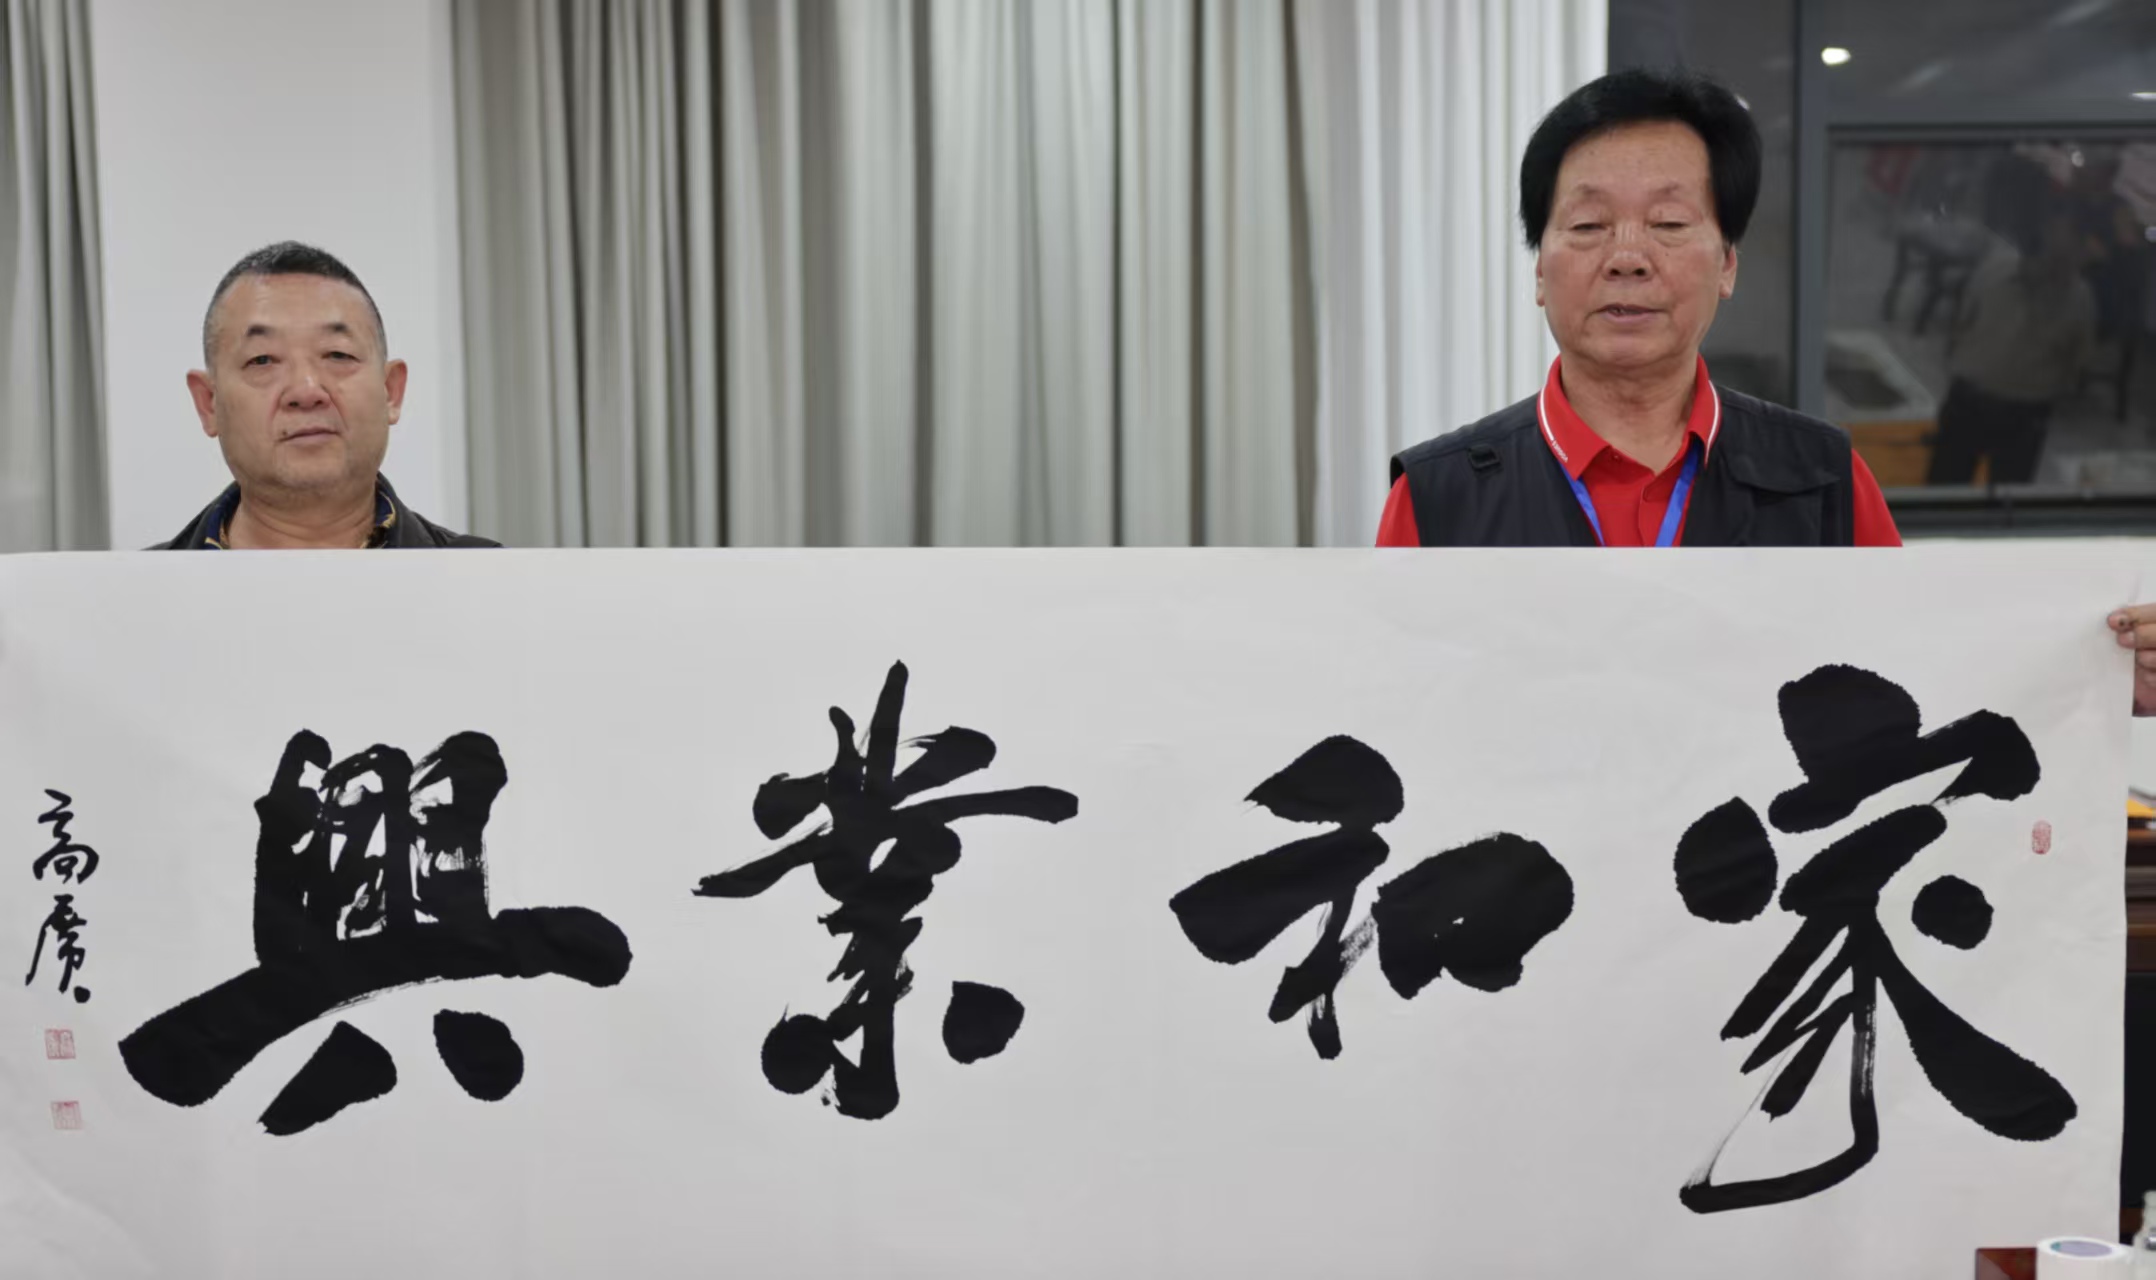 家和業興
高廣